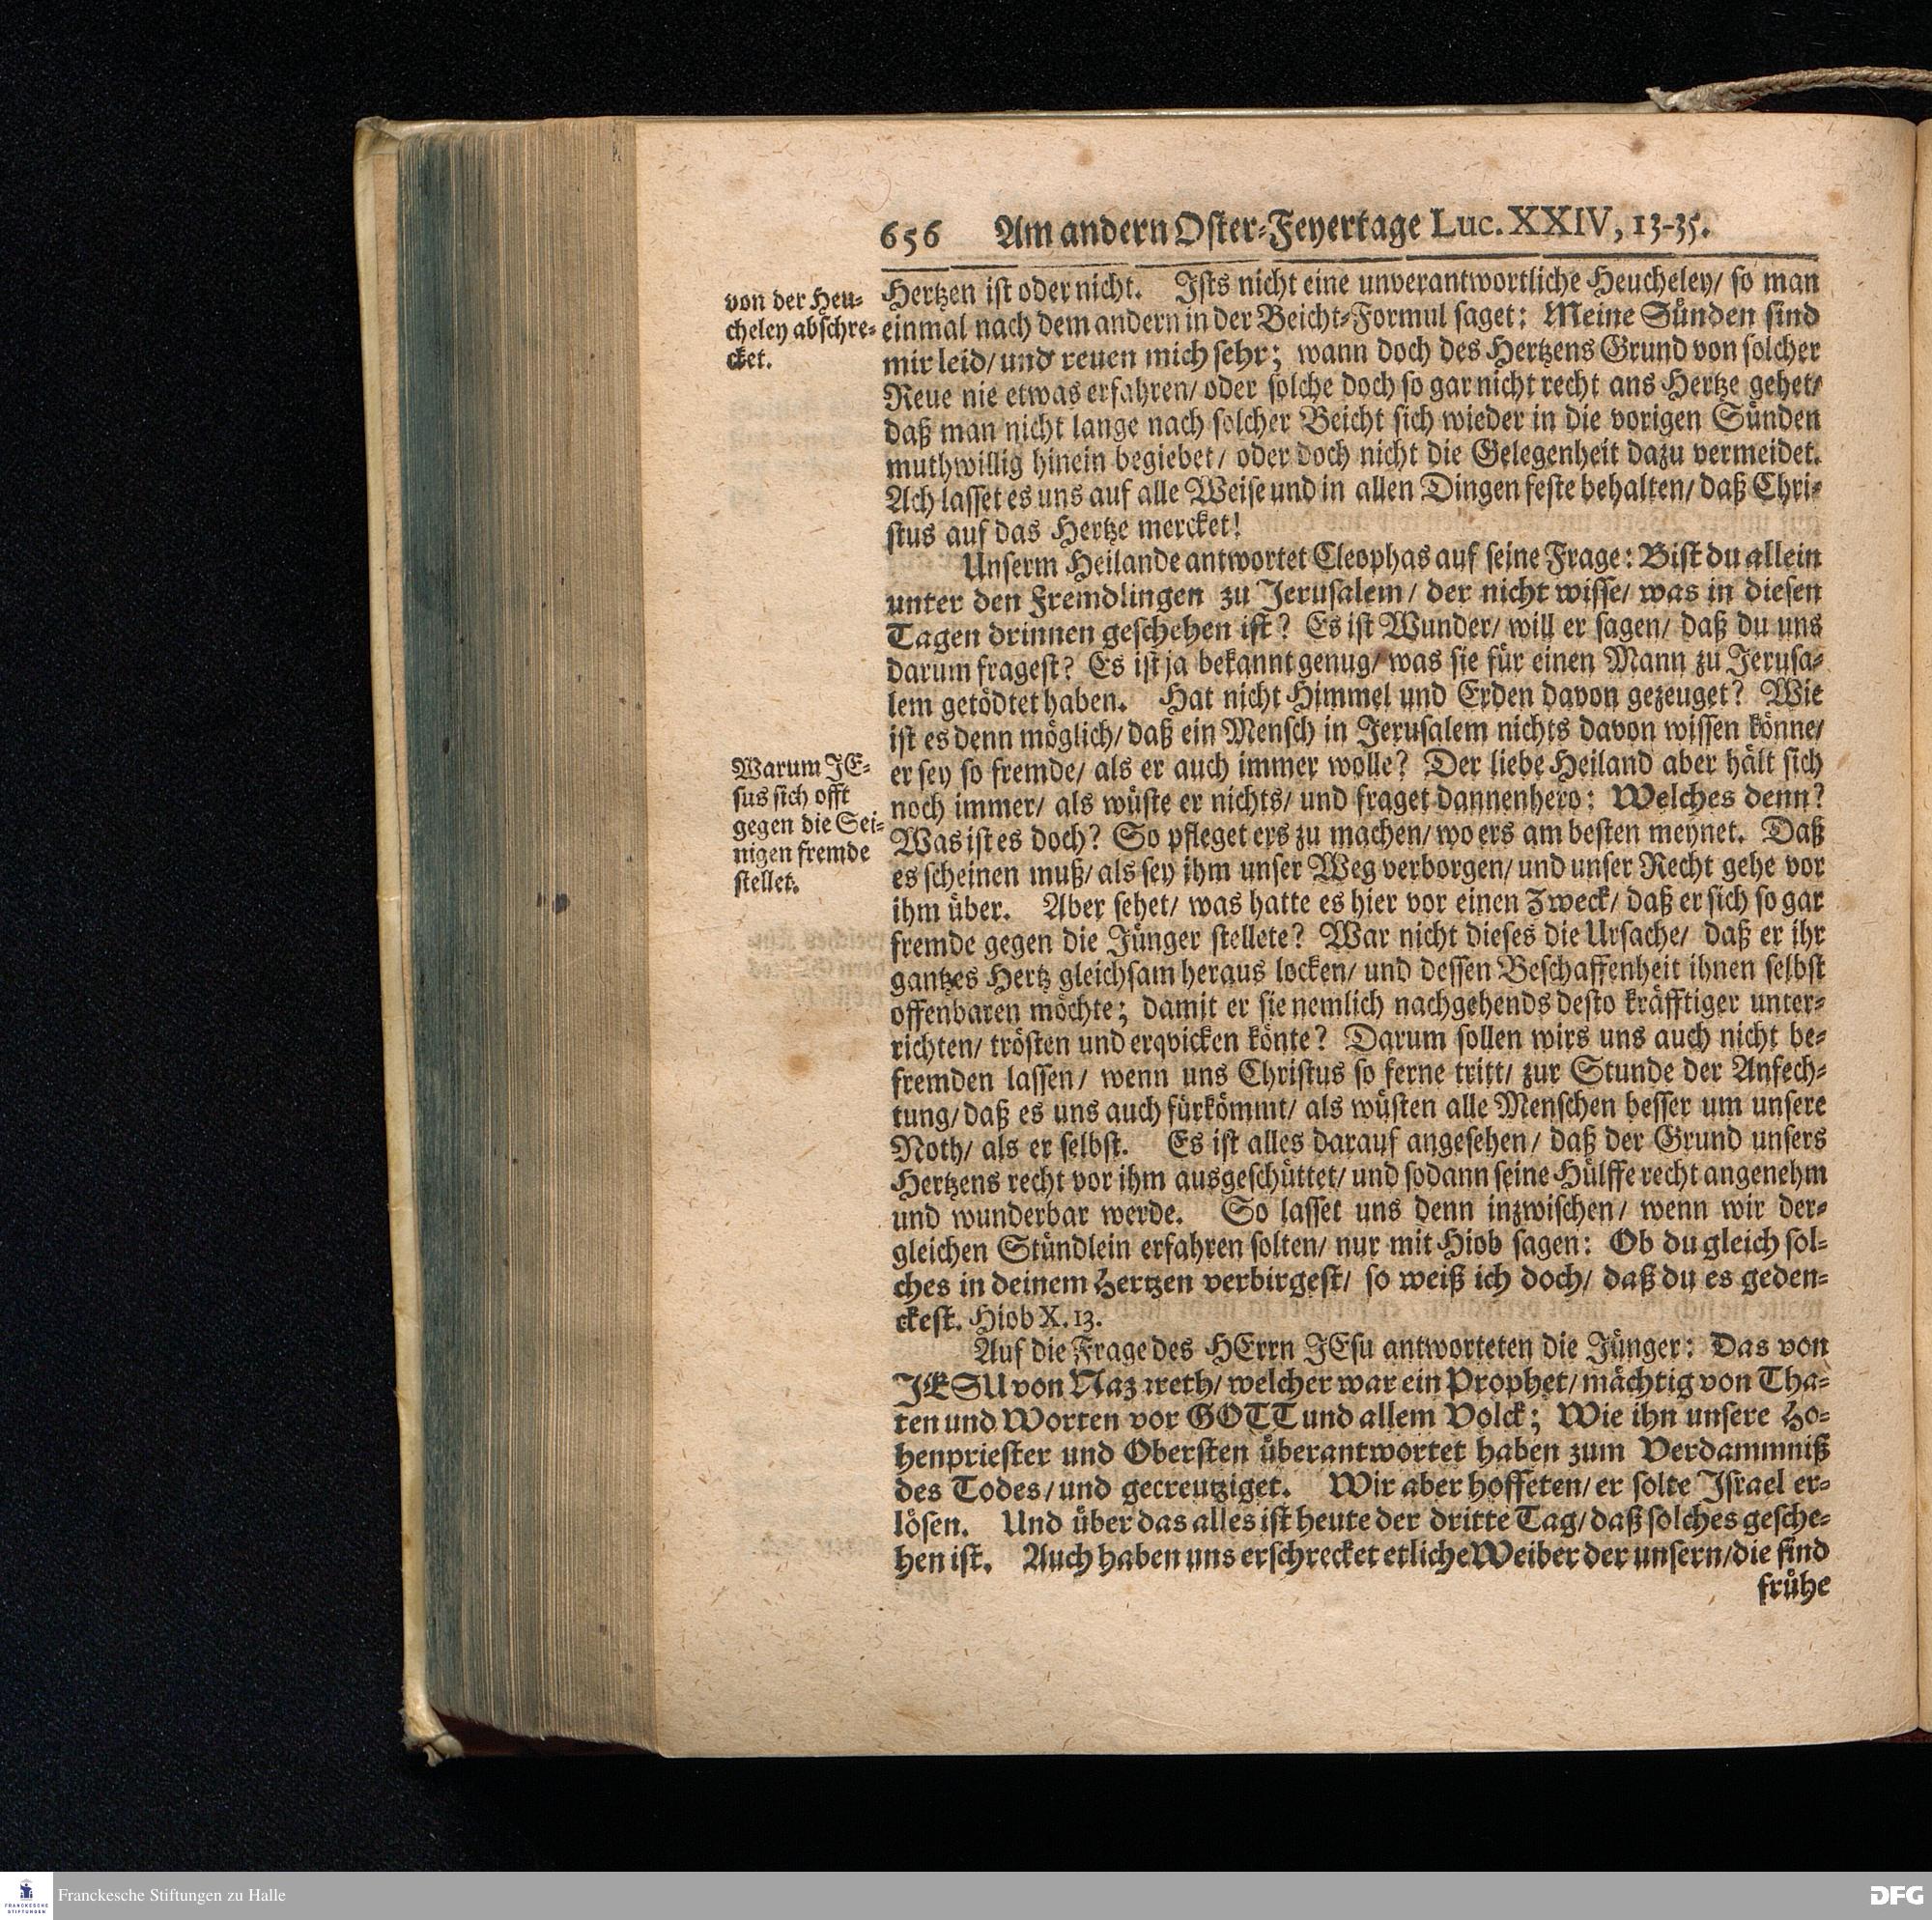 656 Am andern Oster-Feyertage Luc. XXIV, 13-35.
von der Heu-
cheley abschre-
cket.
Hertzen ist oder nicht. Ists nicht eine unverantwortliche Heucheley/ so man
einmal nach dem andern in der Beicht-Formul saget: Meine Sünden sind
mir leid/ und reuen mich sehr; wann doch des Hertzens Grund von solcher
Reue nie etwas erfahren/ oder solche doch so gar nicht recht ans Hertze gehet/
daß man nicht lange nach solcher Beicht sich wieder in die vorigen Sünden
muthwillig hinein begiebet/ oder doch nicht die Gelegenheit dazu vermeidet.
Ach lasset es uns auf alle Weise und in allen Dingen feste behalten/ daß Chri-
stus auf das Hertze mercket!
Unserm Heilande antwortet Cleophas auf seine Frage: Bist du allein
unter den Fremdlingen zu Jerusalem/ der nicht wisse/ was in diesen
Tagen drinnen geschehen ist? Es ist Wunder/ will er sagen/ daß du uns
darum fragest? Es ist ja bekannt genug/ was sie für einen Mann zu Jerusa-
lem getödtet haben. Hat nicht Himmel und Erden davon gezeuget? Wie
ist es denn möglich/ daß ein Mensch in Jerusalem nichts davon wissen könne/
Warum JE-
sus sich offt
gegen die Sei-
nigen fremde
stellet.
er sey so fremde/ als er auch immer wolle? Der liebe Heiland aber hält sich
noch immer/ als wüste er nichts/ und fraget dannenhero: Welches denn?
Was ist es doch? So pfleget ers zu machen/ wo ers am besten meynet. Daß
es scheinen muß/ als sey ihm unser Weg verborgen/ und unser Recht gehe vor
ihm über. Aber sehet/ was hatte es hier vor einen Zweck/ daß er sich so gar
fremde gegen die Jünger stellete? War nicht dieses die Ursache/ daß er ihr
gantzes Hertz gleichsam heraus locken/ und dessen Beschaffenheit ihnen selbst
offenbaren möchte; damit er sie nemlich nachgehends desto kräfftiger unter-
richten/ trösten und erqvicken könte? Darum sollen wirs uns auch nicht be-
fremden lassen/ wenn uns Christus so ferne tritt/ zur Stunde der Anfech-
tung/ daß es uns auch fürkömmt/ als wüsten alle Menschen besser um unsere
Noth/ als er selbst. Es ist alles darauf angesehen/ daß der Grund unsers
Hertzens recht vor ihm ausgeschüttet/ und sodann seine Hülffe recht angenehm
und wunderbar werde. So lasset uns denn inzwischen/ wenn wir der-
gleichen Stündlein erfahren solten/ nur mit Hiob sagen: Ob du gleich sol-
ches in deinem Hertzen verbirgest/ so weiß ich doch/ daß du es geden-
ckest. Hiob X. 13.
Auf die Frage des HErrn JEsu antworteten die Jünger: Das von
JESU von Nazareth/ welcher war ein Prophet/ mächtig von Tha-
ten und Worten vor GOTT und allem Volck; Wie ihn unsere Ho-
henpriester und Obersten überantwortet haben zum Verdammniß
des Todes/ und gecreutziget. Wir aber hoffeten/ er solte Israel er-
lösen. Und über das alles ist heute der dritte Tag/ daß solches gesche-
hen ist. Auch haben uns erschrecket etliche Weiber der unsern/ die sind
frühe
Franckesche Stiftungen zu Halle
FRANCKESCHE
STIFTUNGEN
DFG